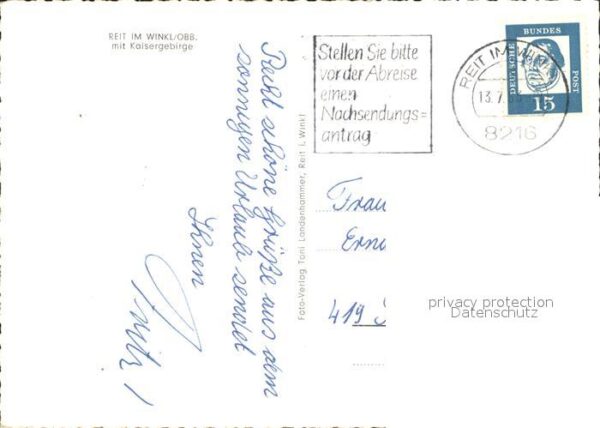 REIT IM WINKL/OBB.
mit Kaisergebirge
Recht schöne Grüße aus dem
sonnigen Urlaub sendet
Ihnen
Foto-Verlag Toni Landenhammer, Reit i. Winkl
Stellen Sie bitte
vor der Abreise
einen
Nachsendungs=
antrag
REIT IM WINKL
13.7.
8216
DEUTSCHE BUNDES POST
15
Frau
Erne
419
privacy protection
Datenschutz